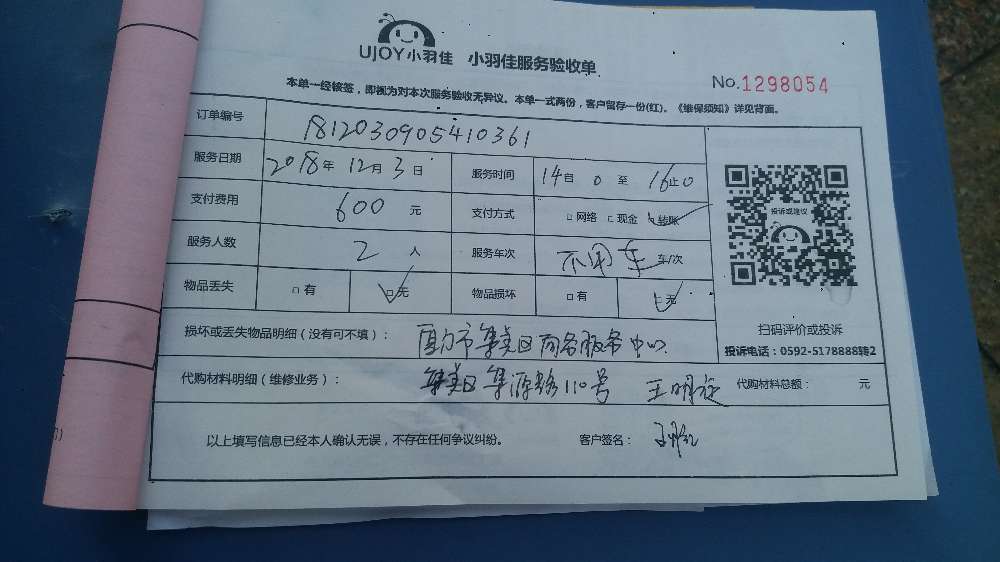 UJOY小羽佳 小羽佳服务验收单
No.1298054
本单一经核签，即视为对本次服务验收无异议。本单一式两份，客户留存一份(红)。《维保须知》详见背面。
订单编号 1812030905410361
服务日期 2018年12月3日 服务时间 14自0至16止0
支付费用 600元 支付方式 □网络 □现金 □转账
服务人数 2人 服务车次 不用车 车/次
物品丢失 □有 □无 物品损坏 □有 □无
投诉或建议
扫码评价或投诉
投诉电话：0592-5178888转2
损坏或丢失物品明细（没有可不填）： 厦门市集美区商务服务中心
代购材料明细（维修业务）： 集美区集源路110号 王明 代购材料总额： 元
以上填写信息已经本人确认无误，不存在任何争议纠纷。 客户签名：